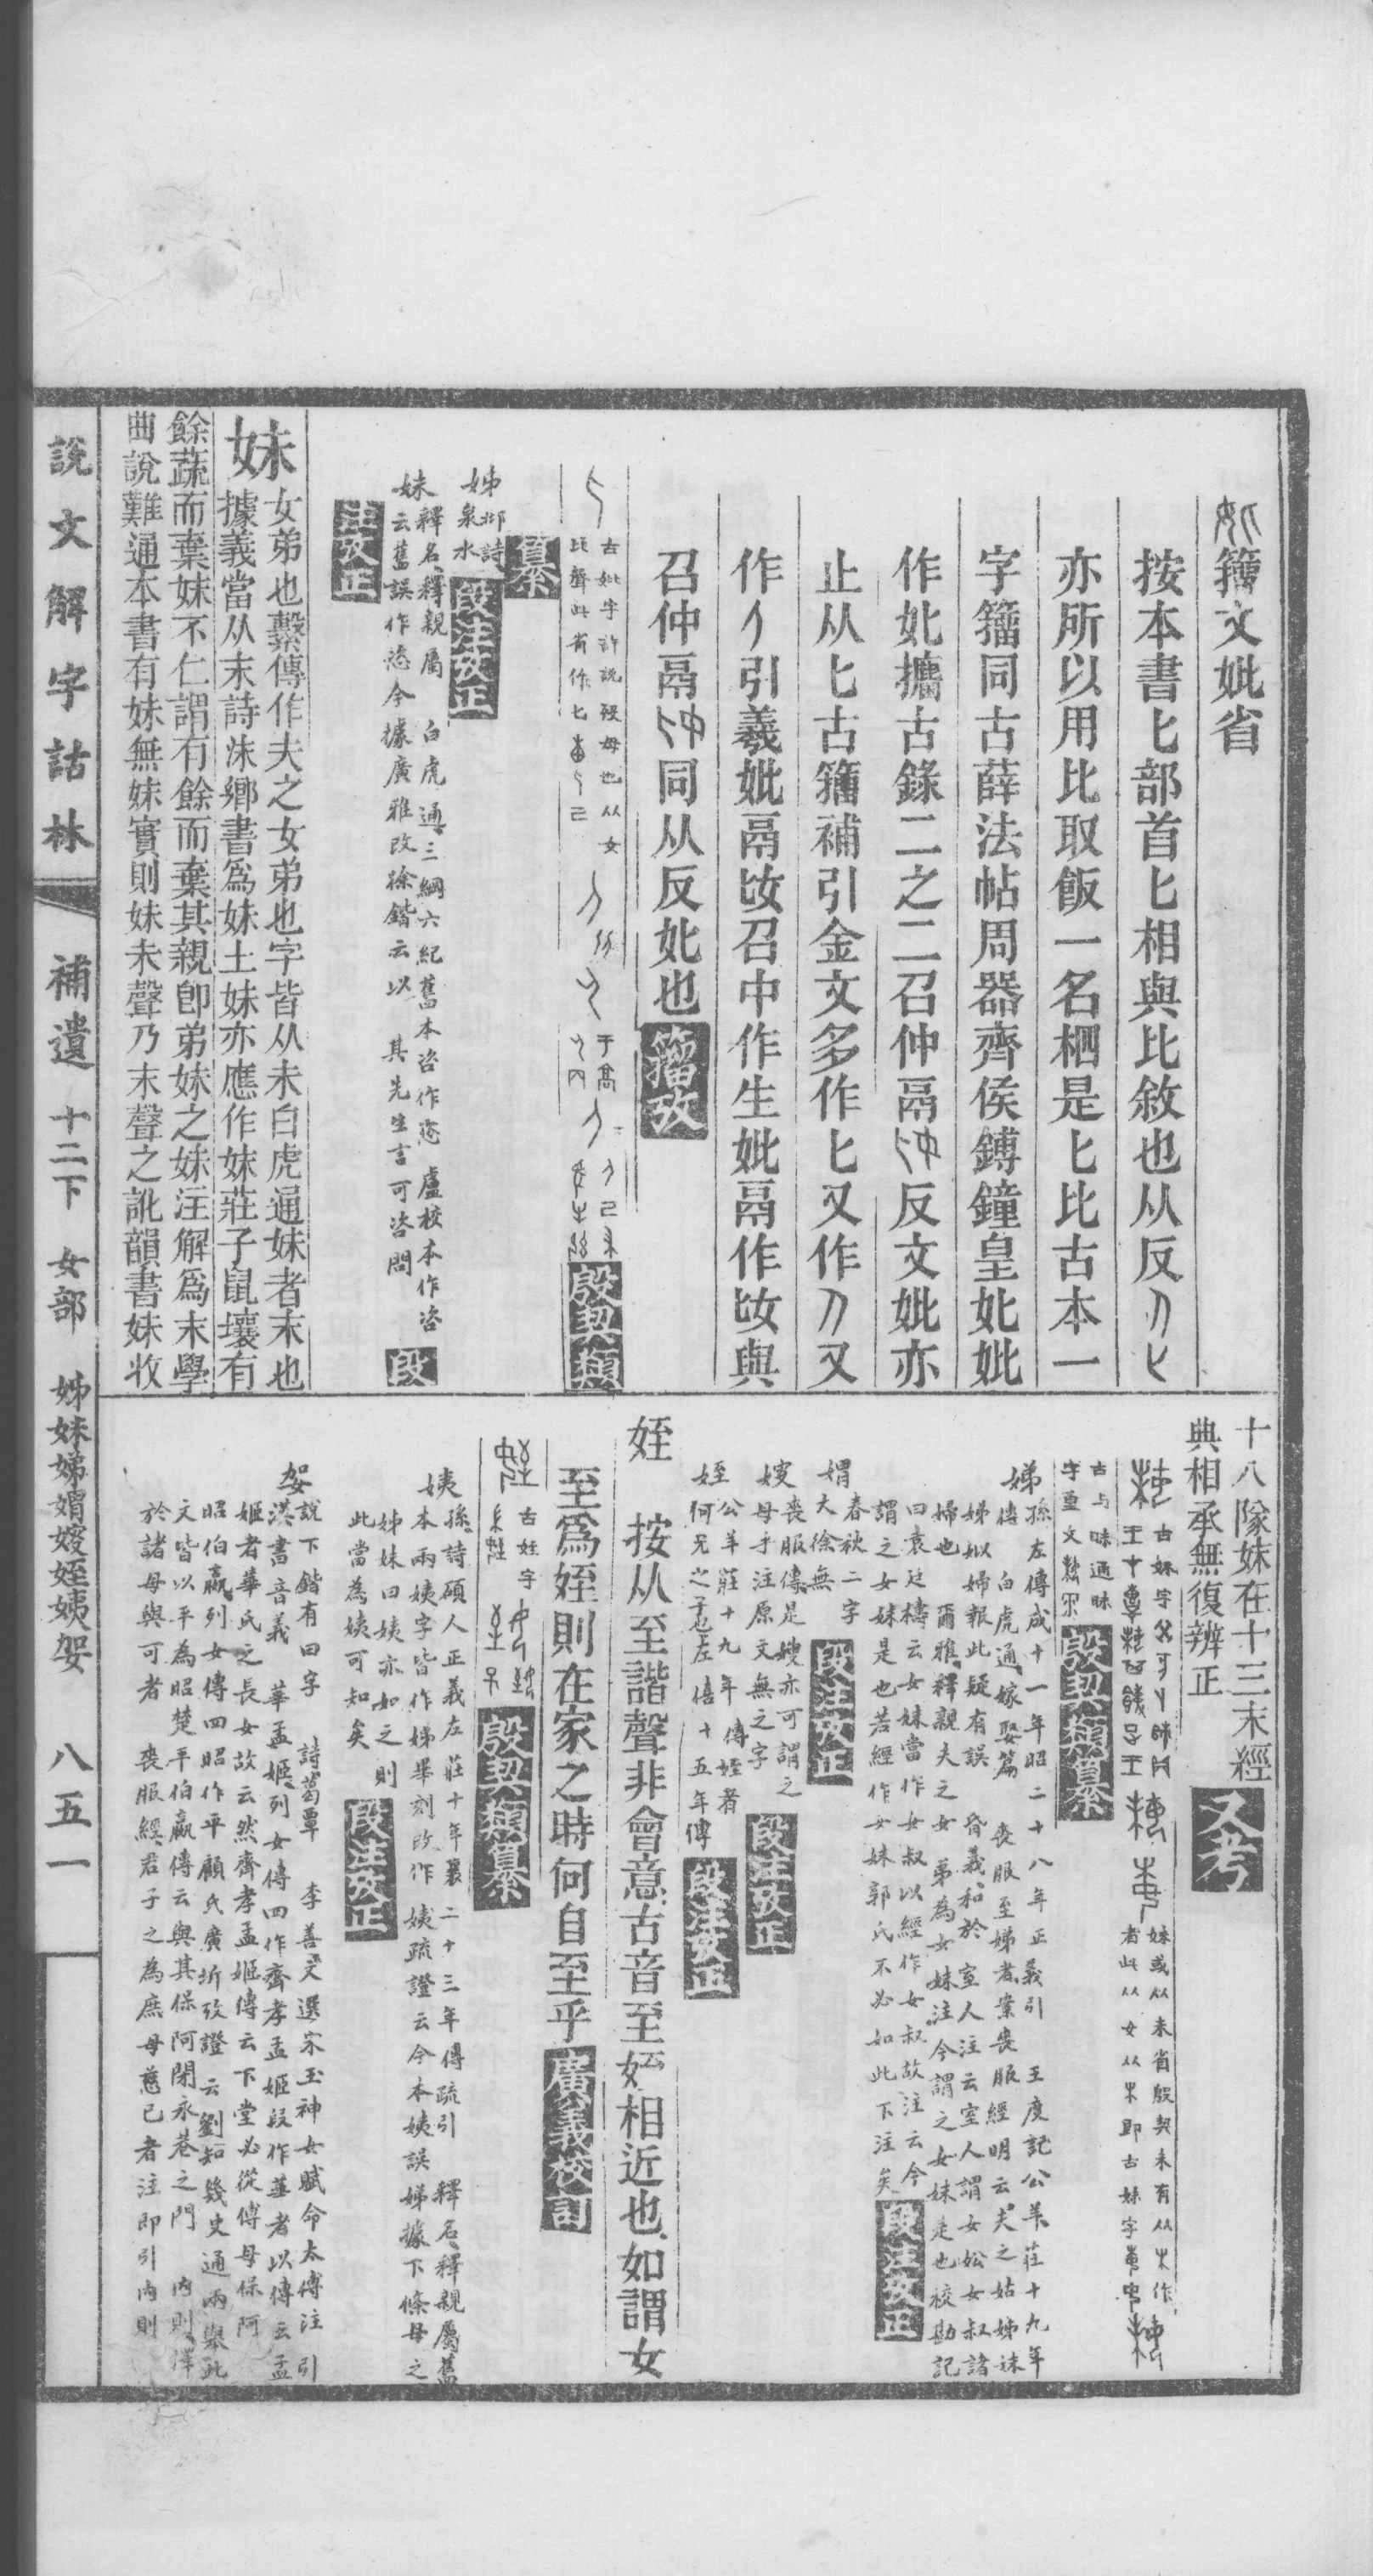 籒文妣省
按本書匕部首匕相與比敘也从反
亦所以用比取飯一名柶是匕比古本一
字籒同古薛法帖周器齊侯鎛鐘皇妣妣
作妣攟古錄二之二召仲鬲反文妣亦
止从匕古籒補引金文多作匕又作又
作引羲妣鬲召中作生妣鬲作與
召仲鬲同从反妣也 籒攷
古妣字許說歿母也从女
比聲此省作匕
殷契類
纂
姊邶詩
泉水 段注攷正
妹釋名釋親屬 白虎通三綱六紀舊本咨作恣盧校本作咨
云舊誤作恣今據廣雅改徐鍇云以 其先生言可咨問 段
注攷正
妹
女弟也繫傳作夫之女弟也字皆从未白虎通妹者末也
據義當从末詩沬鄉書爲妹土妹亦應作妹莊子鼠壤有
餘蔬而棄妹不仁謂有餘而棄其親卽弟妹之妹注解爲末學
曲說難通本書有妹無妹實則妹未聲乃末聲之訛韻書妹收
十八隊妹在十三末經
典相承無復辨正 又考
古妹字
妹或从未省殷契未有从木作
者此从女从木卽古妹字
古与昧通昧
字重文
殷契類纂
娣孫左傳成十一年昭二十八年正義引 王度記公羊莊十九年
傳 白虎通嫁娶篇 喪服至娣者案喪服經明云夫之姑姊妹
娣姒婦報此疑有誤 昏義和於室人注云室人謂女妐女叔諸
婦也 爾雅釋親夫之女弟為女妹注今謂之女妹是也校勘記
曰袁廷檮云女妹當作女叔以經作女叔故注云今
謂之女妹是也若經作女妹郭氏不必如此下注矣 段注攷正
媦大徐無
春秋二字 段注攷正
㛮喪服傳是嫂亦可謂之
母乎注原文無之字 段注攷正
姪公羊莊十九年傳姪者
何兄之子也左僖十五年傳 段注攷正
姪
按从至諧聲非會意古音至姪相近也如謂女
至爲姪則在家之時何自至乎 廣義校訂
古姪字
殷契類纂
姨孫詩碩人正義左莊十年襄二十三年傳疏引 釋名釋親屬舊
本兩姨字皆作娣畢刻改作姨疏證云今本姨誤娣據下條母之
姊妹曰姨亦如之則
此當為姨可知矣 段注攷正
妿說下鍇有曰字 詩葛覃 李善文選宋玉神女賦命太傅注引
漢書音義 華孟姬列女傳四作齊孝孟姬段作華者以傳云孟
姬者華氏之長女故云然齊孝孟姬傳云下堂必從傅母保阿
昭伯嬴列女傳四昭作平顧氏廣圻攷證云劉知幾史通兩舉此
文皆以平為昭楚平伯嬴傳云與其保阿閉永巷之門 內則擇
於諸母與可者 喪服經君子之為庶母慈己者注即引內則
說文解字詁林 補遺 十二下 女部 姊妹娣媦㛮姪姨妿 八五一